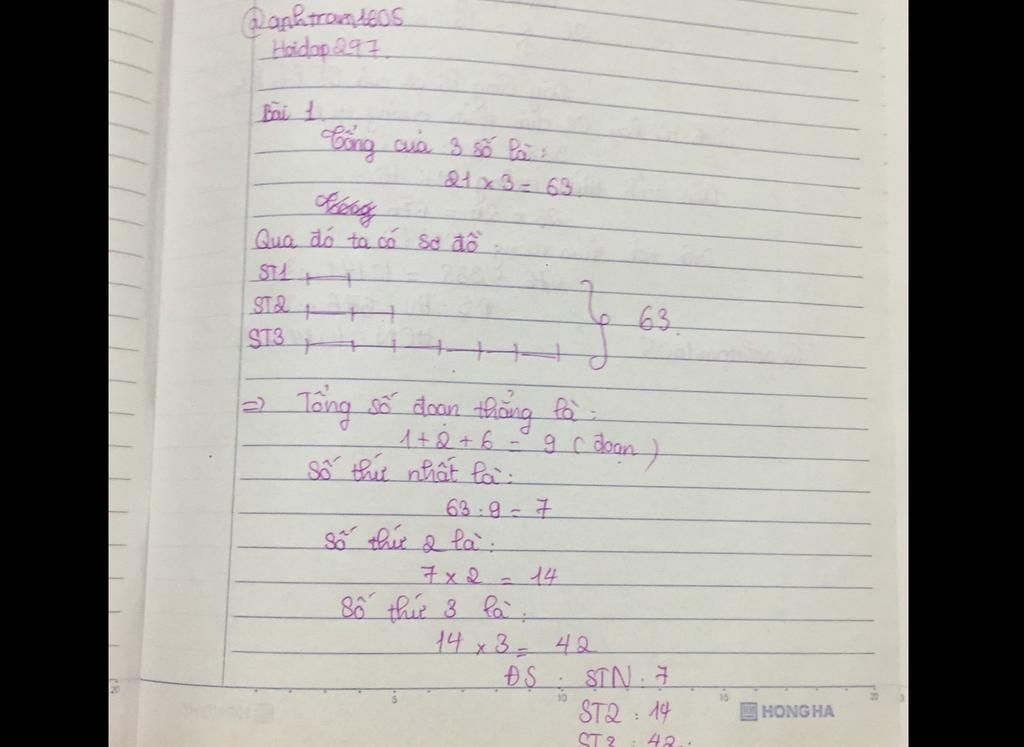 @anhtram1605
Hoidap297.
Bài 1.
Tổng của 3 số là:
21 x 3 = 63.
Qua đó ta có sơ đồ
ST1
ST2
63.
ST3
=> Tổng số đoạn thẳng là:
1 + 2 + 6 = 9 (đoạn)
Số thứ nhất là:
63 : 9 = 7
Số thứ 2 là:
7 x 2 = 14
Số thứ 3 là:
14 x 3 = 42
ĐS : STN : 7
ST2 : 14
ST3 : 42.
20 5 10 15 20
HONG HA